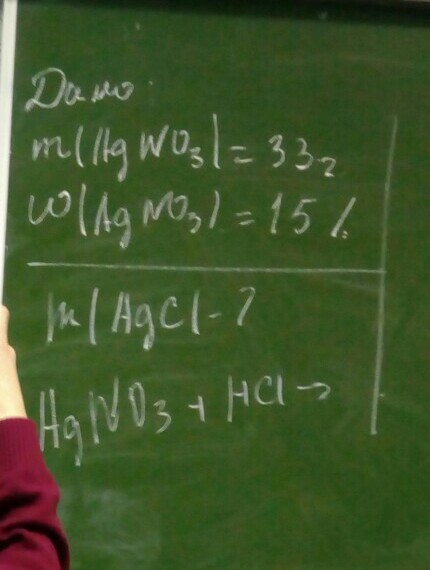 Дано:
m(AgNO₃) = 33г
ω(AgNO₃) = 15%
m(AgCl) - ?
AgNO₃ + HCl →